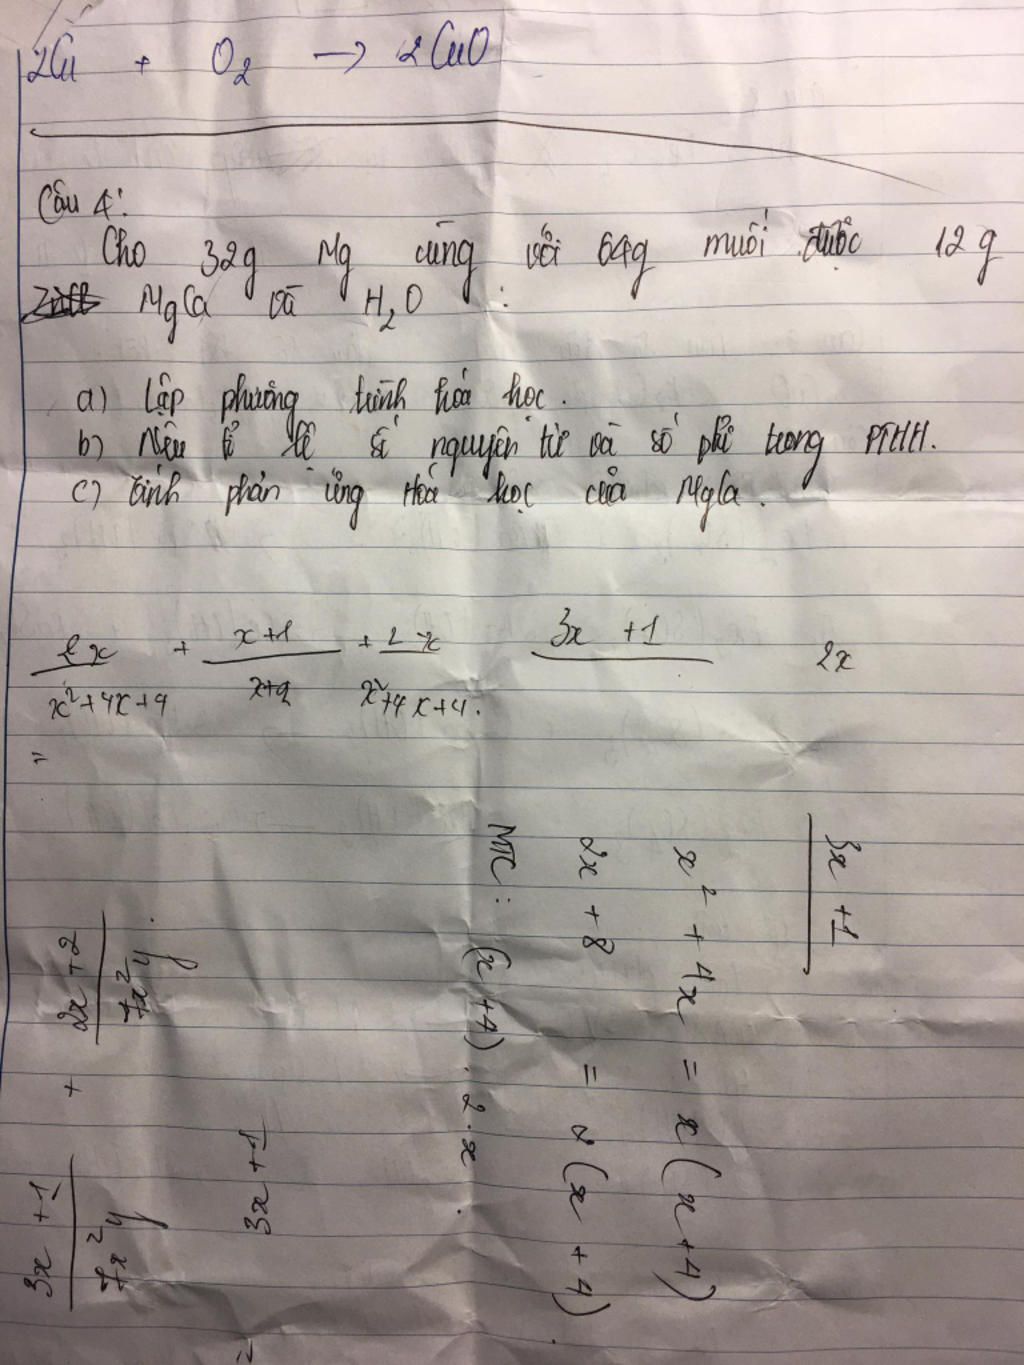 2Cu + O₂ → 2CuO
Câu 4:
Cho 32g Mg cùng với 64g muối được 12g
MgCa và H₂O :
a) Lập phương trình hóa học.
b) Nêu tỉ lệ số nguyên tử và số ptử trong PTHH.
c) Tính phản ứng Hoá học của MgCa.
x+1 2-x 3x +1
+ + 2x
x²+4x+4 x+2 x²+4x+4.
=
3x +1
x² + 4x = x(x+4)
2x + 8 = 2(x+4).
MTC: (x+4).2.x.
3x+1 =
3x+1 + 2x+2
7x²y 7x²y.